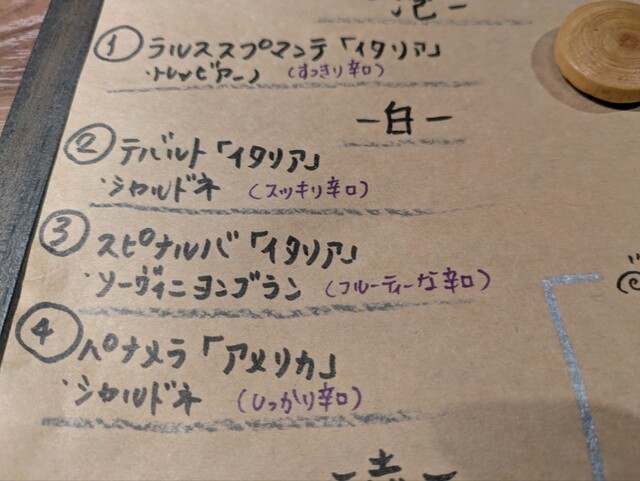 ー泡ー
① ラルススプマンテ「イタリア」
・トレッビアーノ (すっきり辛口)
ー白ー
② テバルト「イタリア」
・シャルドネ (スッキリ辛口)
③ スピナルバ「イタリア」
・ソーヴィニヨンブラン (フルーティーな辛口)
④ ペナメラ「アメリカ」
・シャルドネ (しっかり辛口)